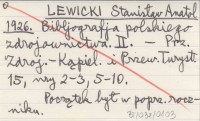 LEWICKI Stanisław Anatol
1926. Bibljografja polskiego
zdrojownictwa. II. – Prz.
Zdroj.-Kąpiel. i Przew. Turyst.
15, nry 2-3, 5-10.
Początek był w poprz. rocz-
niku.